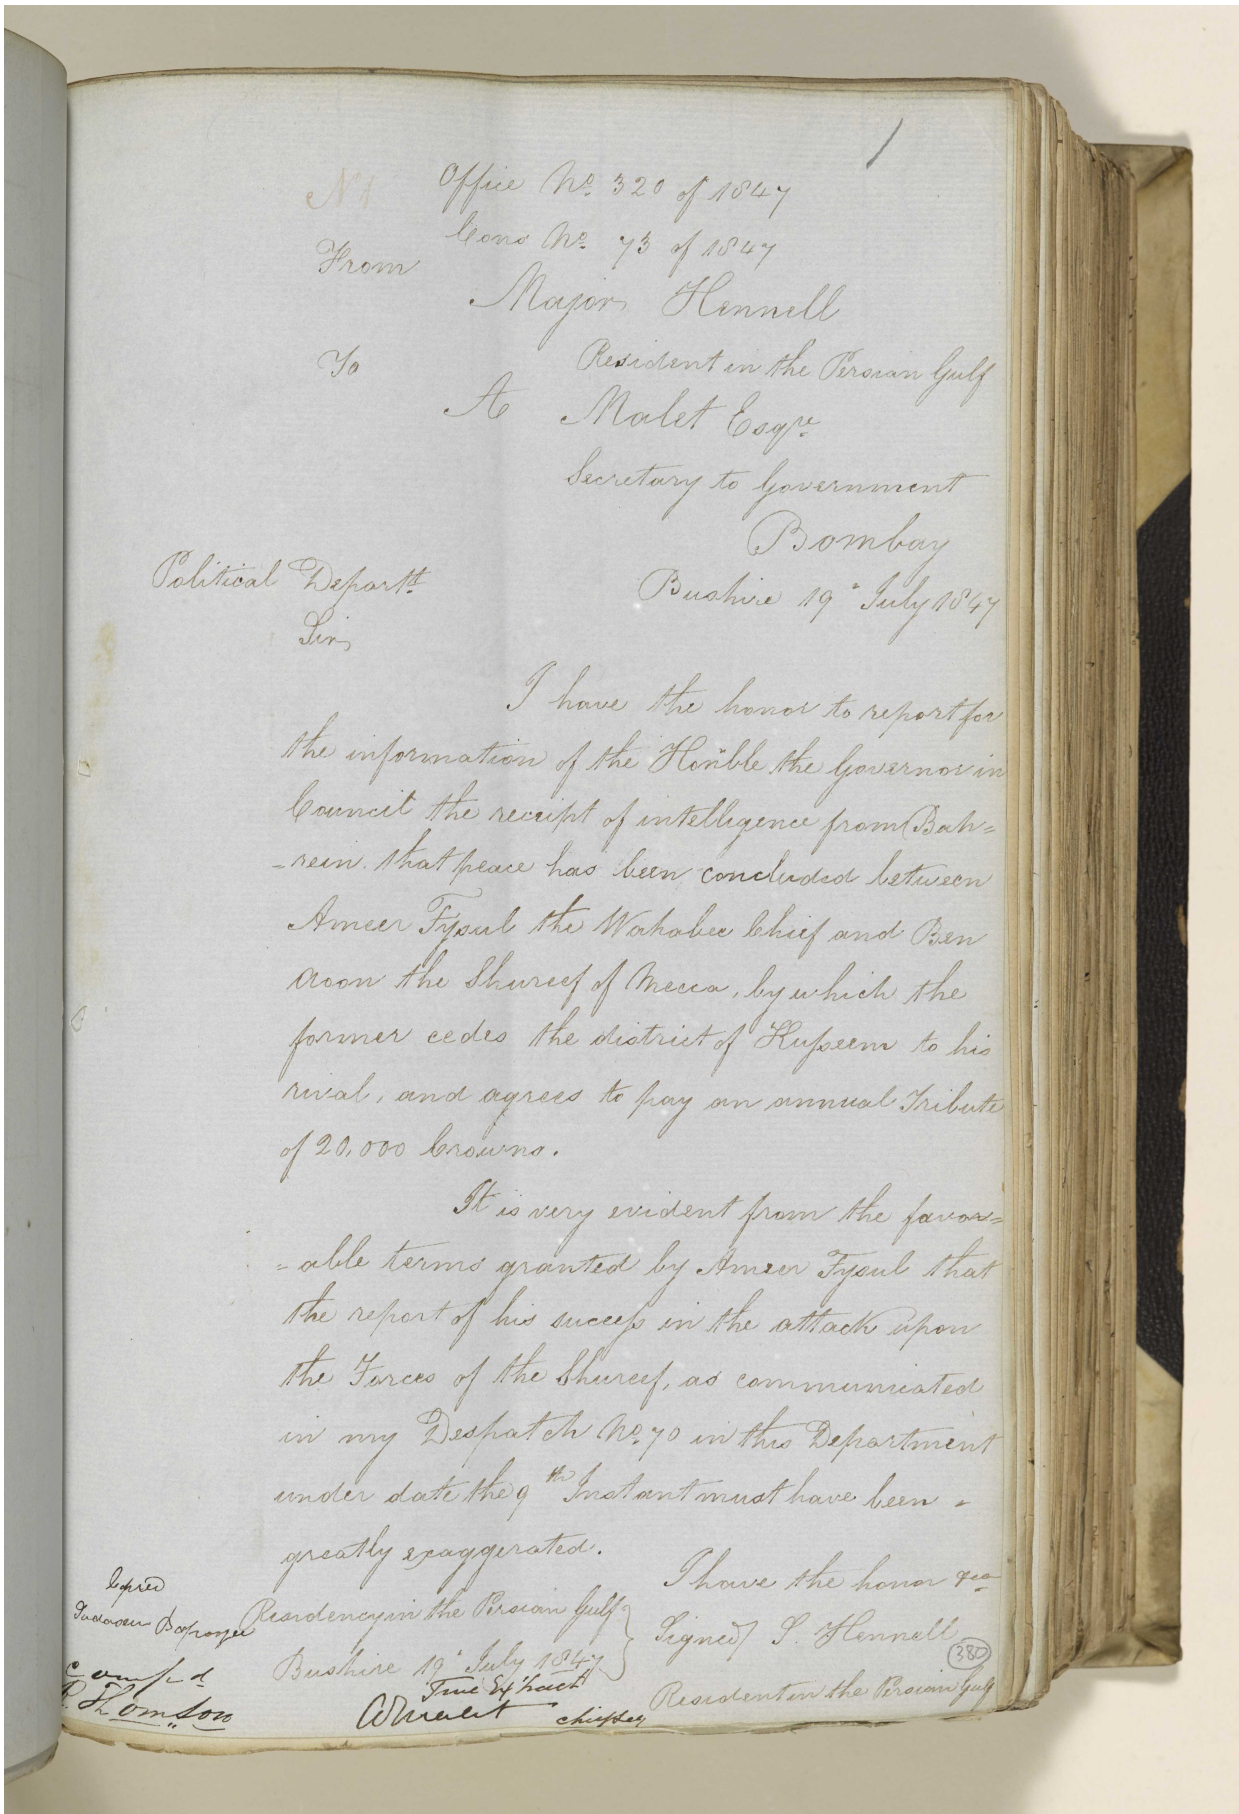 1
No 1
Office No. 320 of 1847
Cons No. 73 of 1847
From
Major Hennell
Resident in the Persian Gulf
To
A Malet Esqre.
Secretary to Government
Bombay
Political Departt.
Bushire 19" July 1847
Sir,
I have the honor to report for
the information of the Honble the Governor in
Council the receipt of intelligence from Bah=
=rein. that peace has been concluded between
Ameer Fysul the Wahabee Chief and Ben
Aoon the Shureef of Mecca, by which the
former cedes the district of Kusseem to his
rival, and agrees to pay an annual Tribute
of 20,000 Crowns.
It is very evident from the favor=
=able terms granted by Ameer Fysul that
the report of his success in the attack upon
the Forces of the Shureef, as communicated
in my Despatch No. 70 in this Department
under date the 9th Instant must have been
greatly exaggerated.
I have the honor &ca
Signed/ S. Hennell
Resident in the Persian Gulf
Residency in the Persian Gulf
Bushire 19" July 1847
True Extract
A Malet
Chief Sey
Copied
Compd.
R. Thomson
380